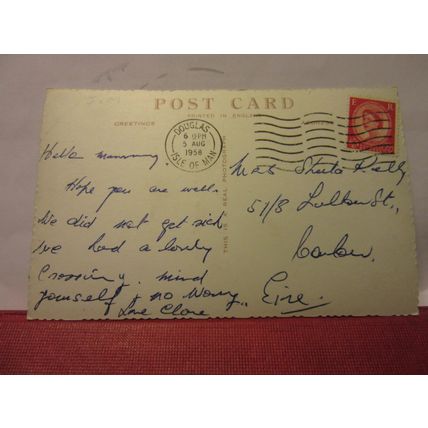 POST CARD
PRINTED IN ENGLAND
GREETINGS
DOUGLAS
6 PM
5 AUG
1958
ISLE OF MAN
E R
THIS IS A REAL PHOTOGRAPH
Hello mammy
Hope you are well.
We did not get sick
we had a lovely
Crossing. mind
yourself & no worry
Love Clare
Mrs Sheila Reilly
St.,
Carlow,
Eire.